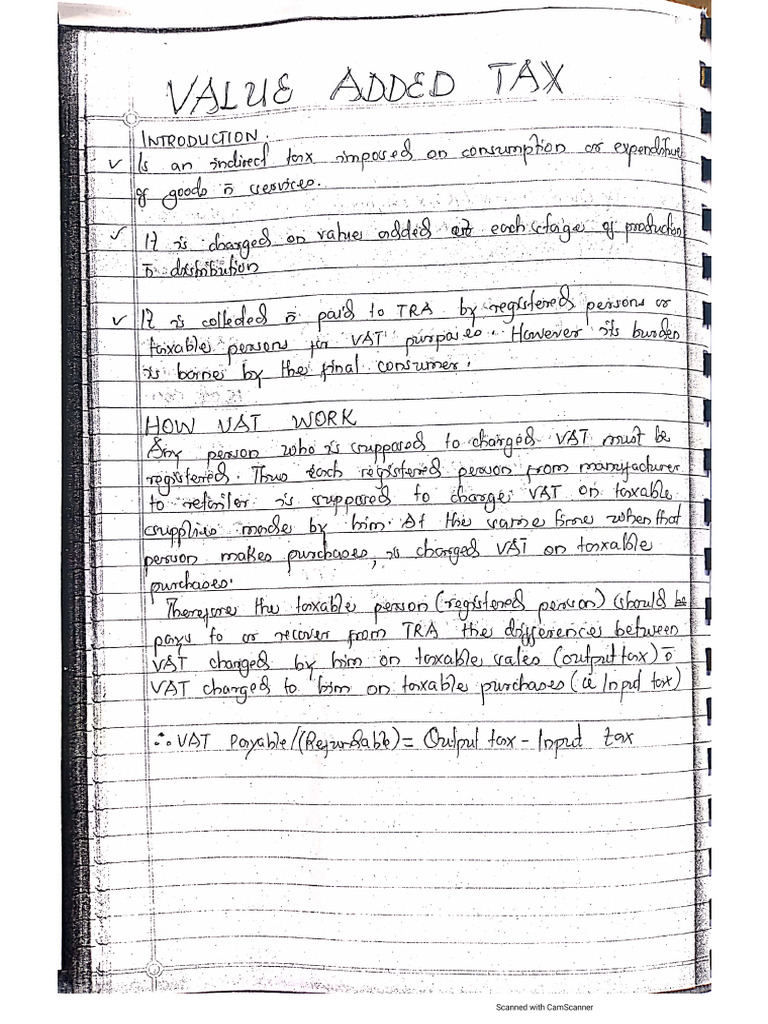 VALUE ADDED TAX
INTRODUCTION.
✓ Is an indirect tax imposed on consumption or expenditure
of goods n̄ services.
✓ It is charged on value added at each stage of production
n̄ distribution
✓ It is collected n̄ paid to TRA by registered persons or
taxable persons for VAT purposes. However its burden
is borne by the final consumer.
HOW VAT WORK
Any person who is supposed to charged VAT must be
registered. Thus each registered person from manufacturer
to retailer is supposed to charge VAT on taxable
supplies made by him. At the same time when that
person makes purchases, is charged VAT on taxable
purchases.
Therefore the taxable person (registered person) should be
pays to or recover from TRA the differences between
VAT charged by him on taxable sales (output tax) n̄
VAT charged to him on taxable purchases (ie Input tax)
∴ VAT Payable/(Refundable) = Output tax - Input tax
Scanned with CamScanner